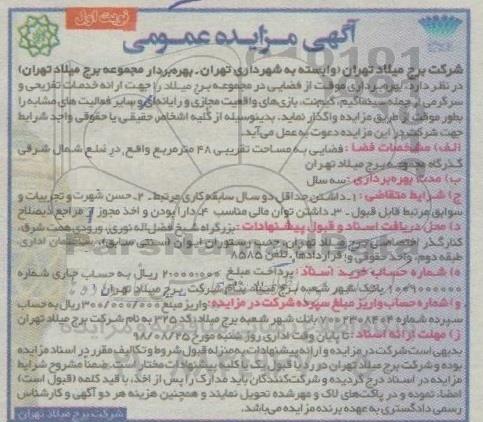 نوبت اول
آگهی مزایده عمومی
شرکت برج میلاد تهران (وابسته به شهرداری تهران - بهره‌بردار مجموعه برج میلاد تهران)
در نظر دارد، بهره‌برداری موقت از فضایی در مجموعه برج میلاد را جهت ارائه خدمات تفریحی و
سرگرمی از جمله سینماگیم، گیم‌نت، بازی‌های واقعیت مجازی و رایانه‌ای و سایر فعالیت های مشابه را
بطور موقت از طریق مزایده واگذار نماید. بدینوسیله از کلیه اشخاص حقیقی یا حقوقی واجد شرایط
جهت شرکت در این مزایده دعوت به عمل می‌آید.
الف) مشخصات فضا: فضایی به مساحت تقریبی ۴۸ مترمربع واقع در ضلع شمال شرقی
گذرگاه مجموعه برج میلاد تهران
ب) مدت بهره‌برداری: سه سال
ج) شرایط متقاضی: ۱- داشتن حداقل دو سال سابقه کاری مرتبط ۲- حسن شهرت و تجربیات و
سوابق مرتبط قابل قبول ۳- داشتن توان مالی مناسب ۴- دارا بودن و اخذ مجوز از مراجع ذیصلاح
د) محل دریافت اسناد و قبول پیشنهادات: بزرگراه شیخ فضل‌اله نوری، ورودی همت شرق،
کنارگذر اختصاصی برج میلاد تهران، جنب رستوران ایوان (سنتی سابق)، ساختمان اداری،
طبقه دوم، واحد حقوقی و قراردادها، تلفن ۸۵۸۵
ه) شماره حساب خرید اسناد: پرداخت مبلغ ۲۰۰۰۰۰۰ ریال به حساب جاری شماره
بانک شهر شعبه برج میلاد بنام شرکت برج میلاد تهران
و) شماره حساب واریز مبلغ سپرده شرکت در مزایده: واریز مبلغ ۳۰۰/۰۰۰/۰۰۰ ریال به حساب
سپرده شماره بانک شهر شعبه برج میلاد کد ۳۲۵ به نام شرکت برج میلاد تهران
ز) مهلت ارائه اسناد: تا پایان وقت اداری روز شنبه مورخ ۹۸/۰۸/۲۵
بدیهی است شرکت در مزایده و ارائه پیشنهادات به منزله قبول شروط و تکالیف مقرر در اسناد مزایده
بوده و شرکت برج میلاد تهران در رد یا قبول یک یا کلیه پیشنهادات مختار است. ضمنا مشروح شرایط
مزایده در اسناد درج گردیده و شرکت‌کنندگان باید مدارک را پس از اخذ، با قید کلمه (قبول است)
امضاء نموده و در پاکت‌های لاک و مهر شده تحویل نمایند و همچنین هزینه هر دو آگهی و کارشناس
رسمی دادگستری به عهده برنده مزایده می‌باشد.
شرکت برج میلاد تهران